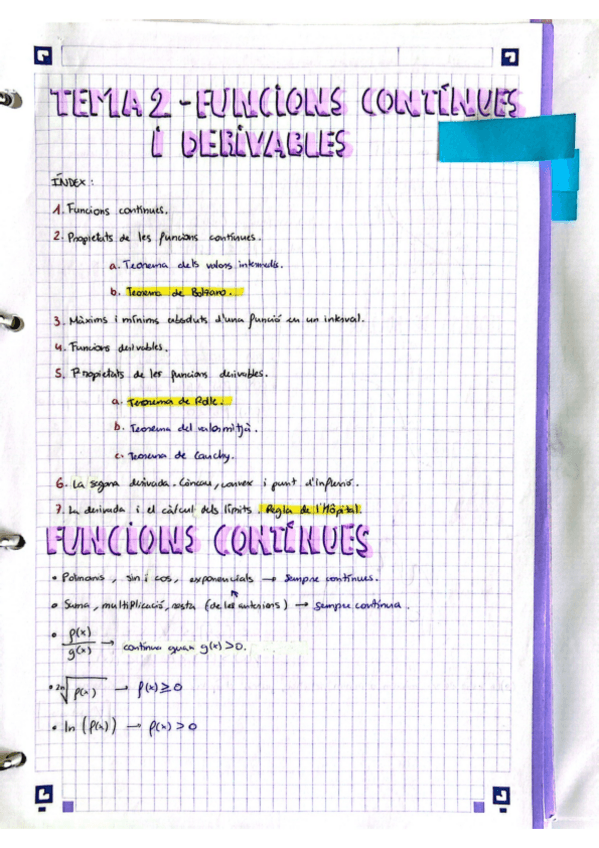 TEMA 2 - FUNCIONS CONTÍNUES
I DERIVABLES
ÍNDEX:
1. Funcions contínues.
2. Propietats de les funcions contínues.
a. Teorema dels valors intermedis.
b. Teorema de Bolzano.
3. Màxims i mínims absoluts d'una funció en un interval.
4. Funcions derivables.
5. Propietats de les funcions derivables.
a. Teorema de Rolle.
b. Teorema del valor mitjà.
c. Teorema de Cauchy.
6. La segona derivada. Còncau, convex i punt d'inflexió.
7. La derivada i el càlcul dels límits. Regla de l'Hôpital.
FUNCIONS CONTÍNUES
• Polinomis, sin i cos, exponencials → sempre contínues.
• Suma, multiplicació, resta (de les anteriors) → sempre contínua.
• f(x)/g(x) → contínua quan g(x)>0.
• ²ⁿ√f(x) → f(x) ≥ 0
• ln (f(x)) → f(x) > 0